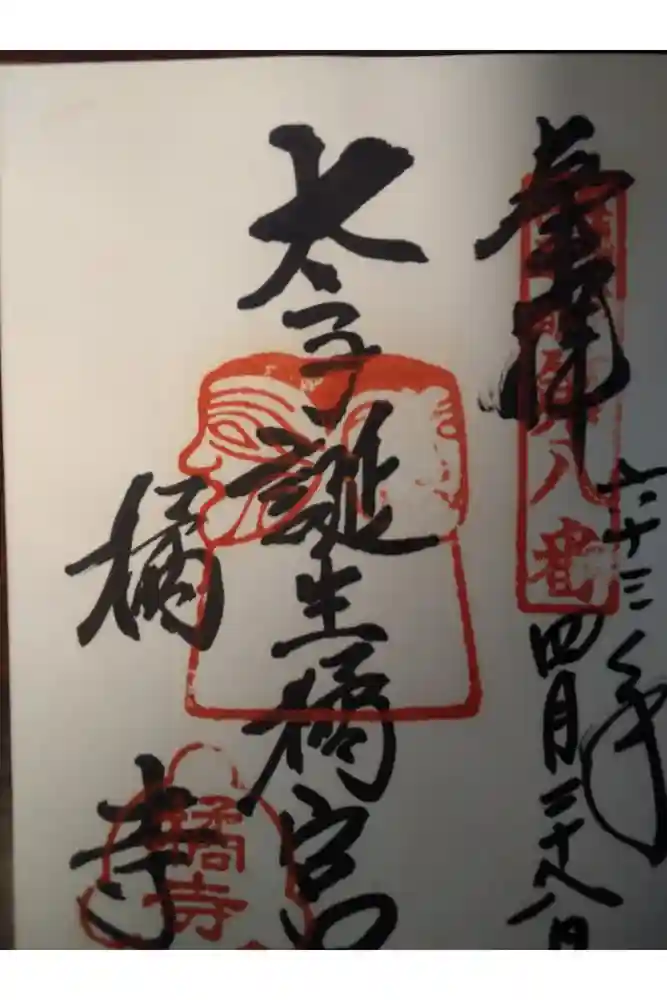 奉拝
第八番
二十三年
四月二十八日
太子誕生橘宮
橘寺
橘寺